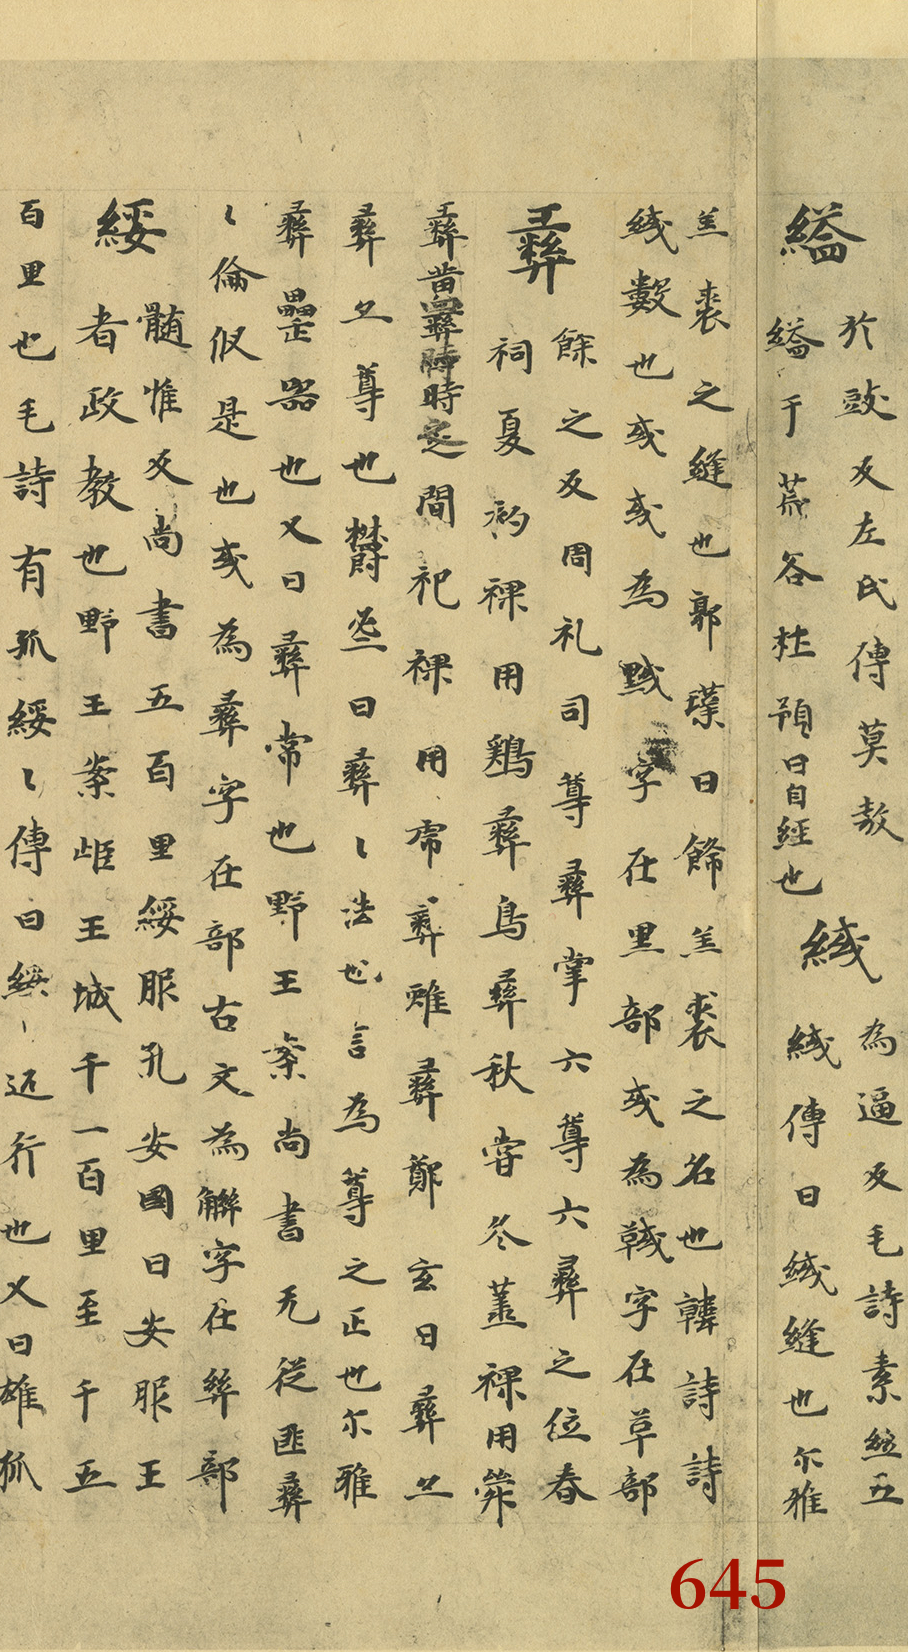 縊
於豉反左氏傳莫敖
縊于荒谷杜預曰自經也
緎
為逼反毛詩素絲五
緎傳曰緎縫也尔雅
羔裘之縫也郭璞曰飾羔裘之名也韓詩詩
緎數也或或為黬字在黑部或為䩹字在革部
彝
餘之反周礼司尊彝掌六尊六彝之位春
祠夏礿祼用鶏彝鳥彝秋甞冬蒸祼用斝
彝黃彝時時之間祀祼用虎彝雖彝鄭玄曰彝上
彝上尊也欝鬯曰彝〻法也言為尊之正也尔雅
彝罍器也又曰彝常也野王案尚書无從匪彝
〻倫仮是也或為彝字在部古文為字在絲部
綏
髄惟反尚書五百里綏服孔安國曰安服王
者政教也野王案歫王城千一百里至千五
百里也毛詩有狐綏〻傳曰綏〻近行也又曰雄狐
645